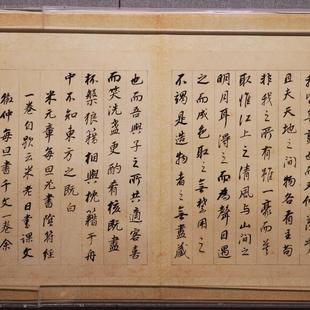 且夫天地之間物各有主苟
非我之所有雖一豪而莫
取惟江上之清風與山間之
明月耳得之而為聲目遇
之而成色取之無禁用之
不竭是造物者之無盡藏
也而吾與子之所共適客喜
而笑洗盞更酌肴核既盡
杯槃狼籍相與枕籍乎舟
中不知東方之既白
米元章每旦書陰符經
一卷自云米老日書課文
徵仲每旦書千文一卷余